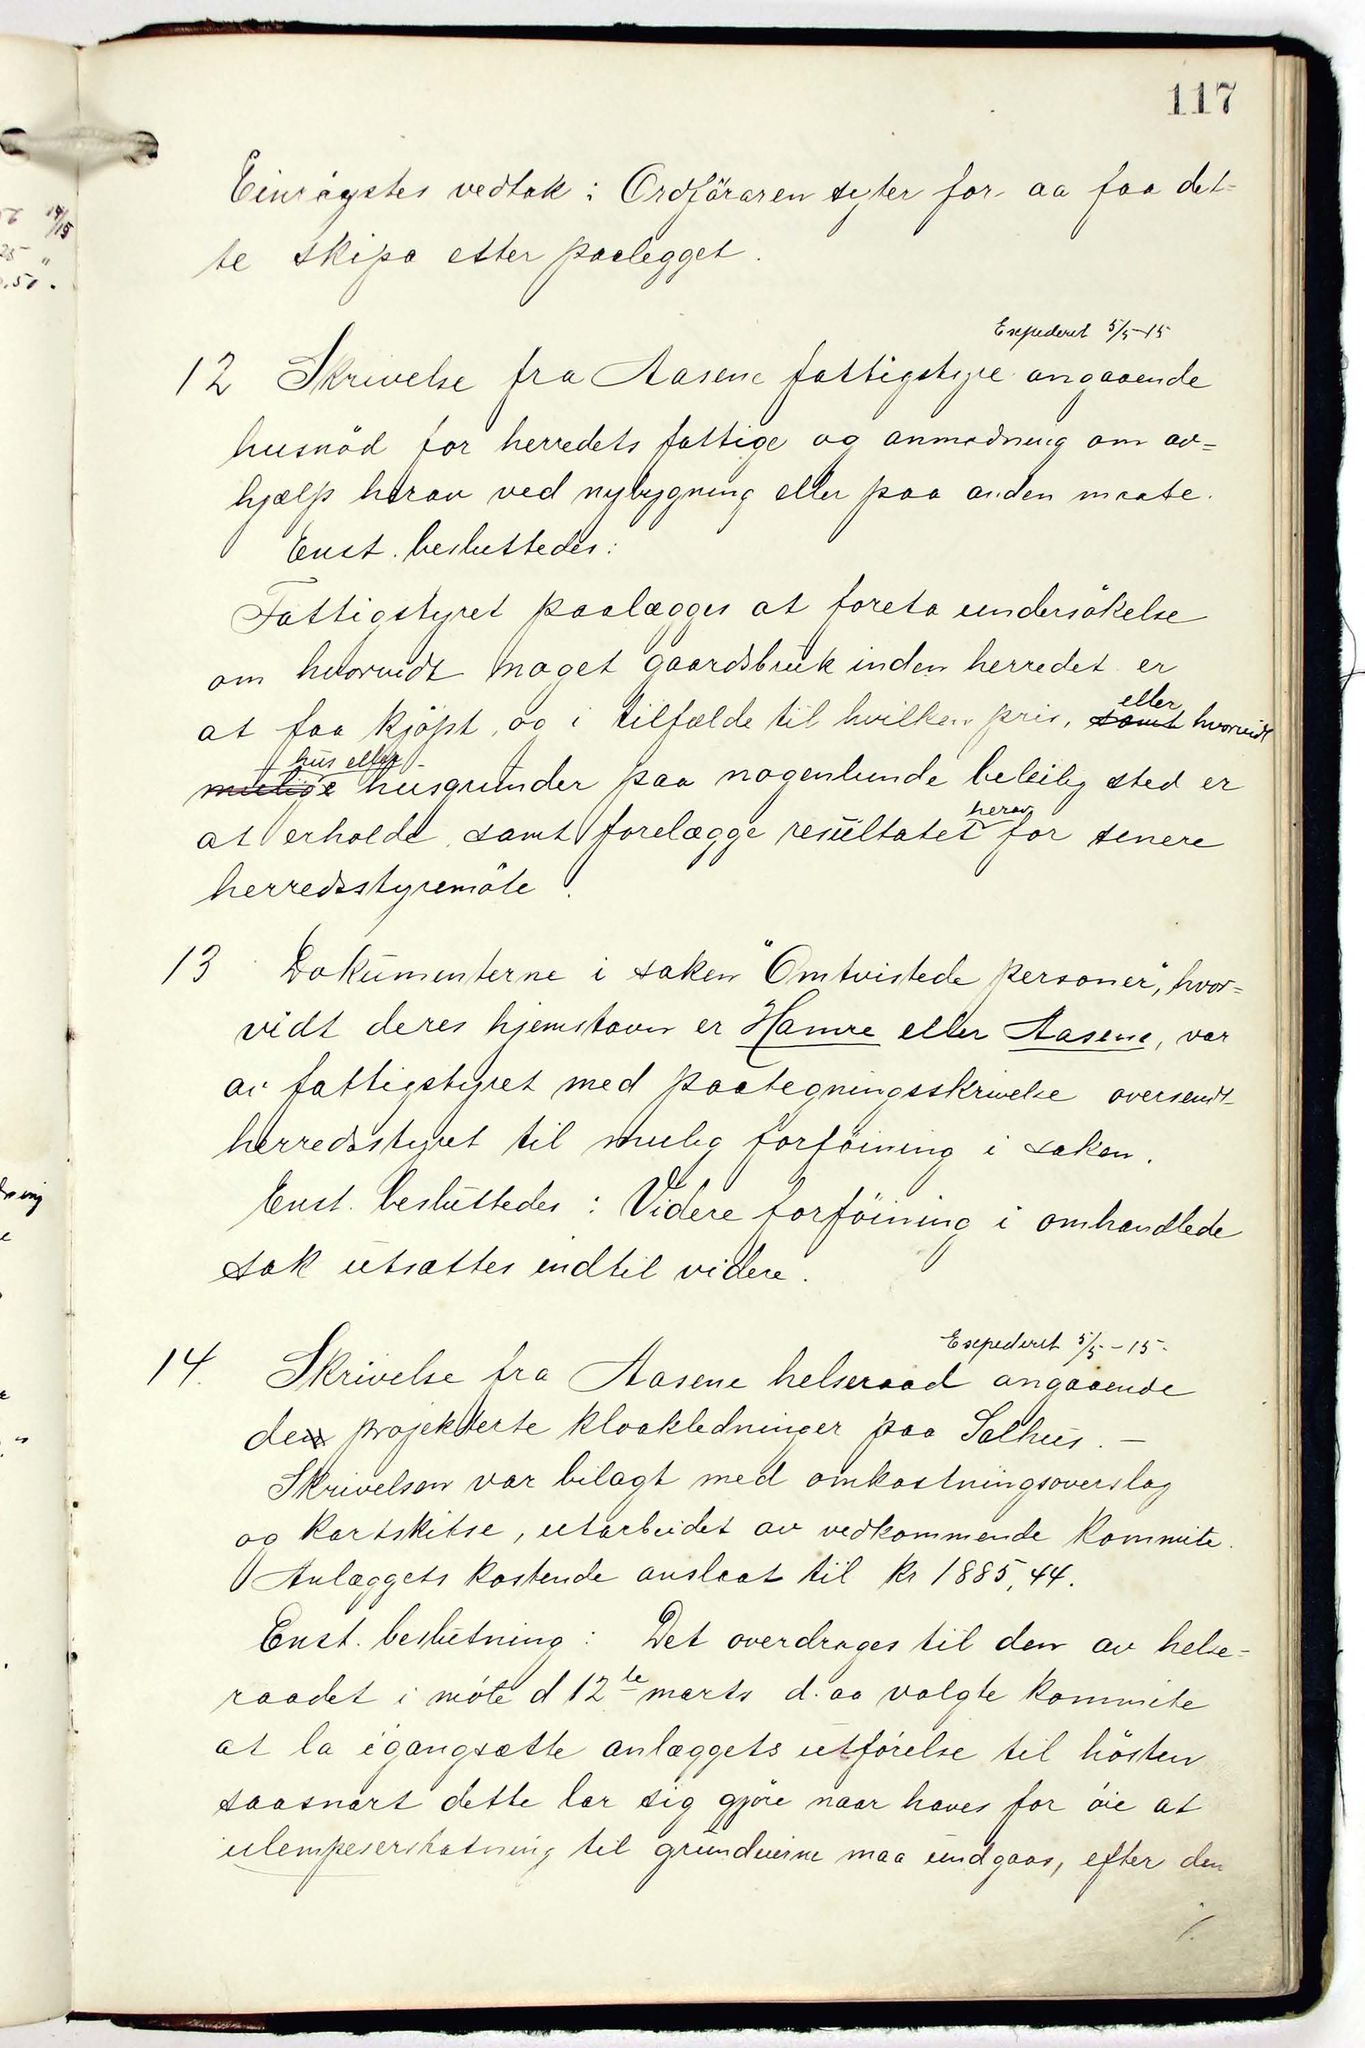 117
Einrøystes vedtak: Ordføraren syter for aa faa det-
te skipa etter paalegget.
Expederet 5/5-15
12 Skrivelse fra Aasene fattigstyre angaaende
husnöd for herredets fattige og anmodning om av=
hjælp herav ved nybygning eller paa anden maate.
Enst. besluttedes:
Fattigstyret paalægges at foreta undersökelse
om hvorvidt noget gaardsbruk inden herredet er
at faa kjöpt, og i tilfælde til hvilken pris, samt eller hvorvidt
mulige hus eller husgrunder paa nogenlunde beleilig sted er
at erholde, samt forelægge resultatet herav for senere
herredsstyremöte.
13 Dokumenterne i saken "Omtvistede personer", hvor=
vidt deres hjemstavn er Hamre eller Aasene, var
av fattigstyret med paategningsskrivelse oversendt
herredsstyret til mulig forföining i saken.
Enst. besluttedes: Videre forföining i omhandlede
sak utsættes indtil videre.
Expederet 5/5-15-
14. Skrivelse fra Aasene helseraad angaaende
den projekterte kloakledninger paa Salhus. —
Skrivelsen var bilagt med omkostningsoverslag
og kartskitse, utarbeidet av vedkommende komite.
Anlæggets kostende anslaat til kr 1885,44.
Enst. beslutning: Det overdrages til den av helse=
raadet i möte d 12te marts d. aa valgte komite
at la igangsætte anlæggets utförelse til hösten
saasnart dette lar sig gjöre naar haves for öie at
ulempeserstatning til grundeierne maa undgaaes, efter den
./.